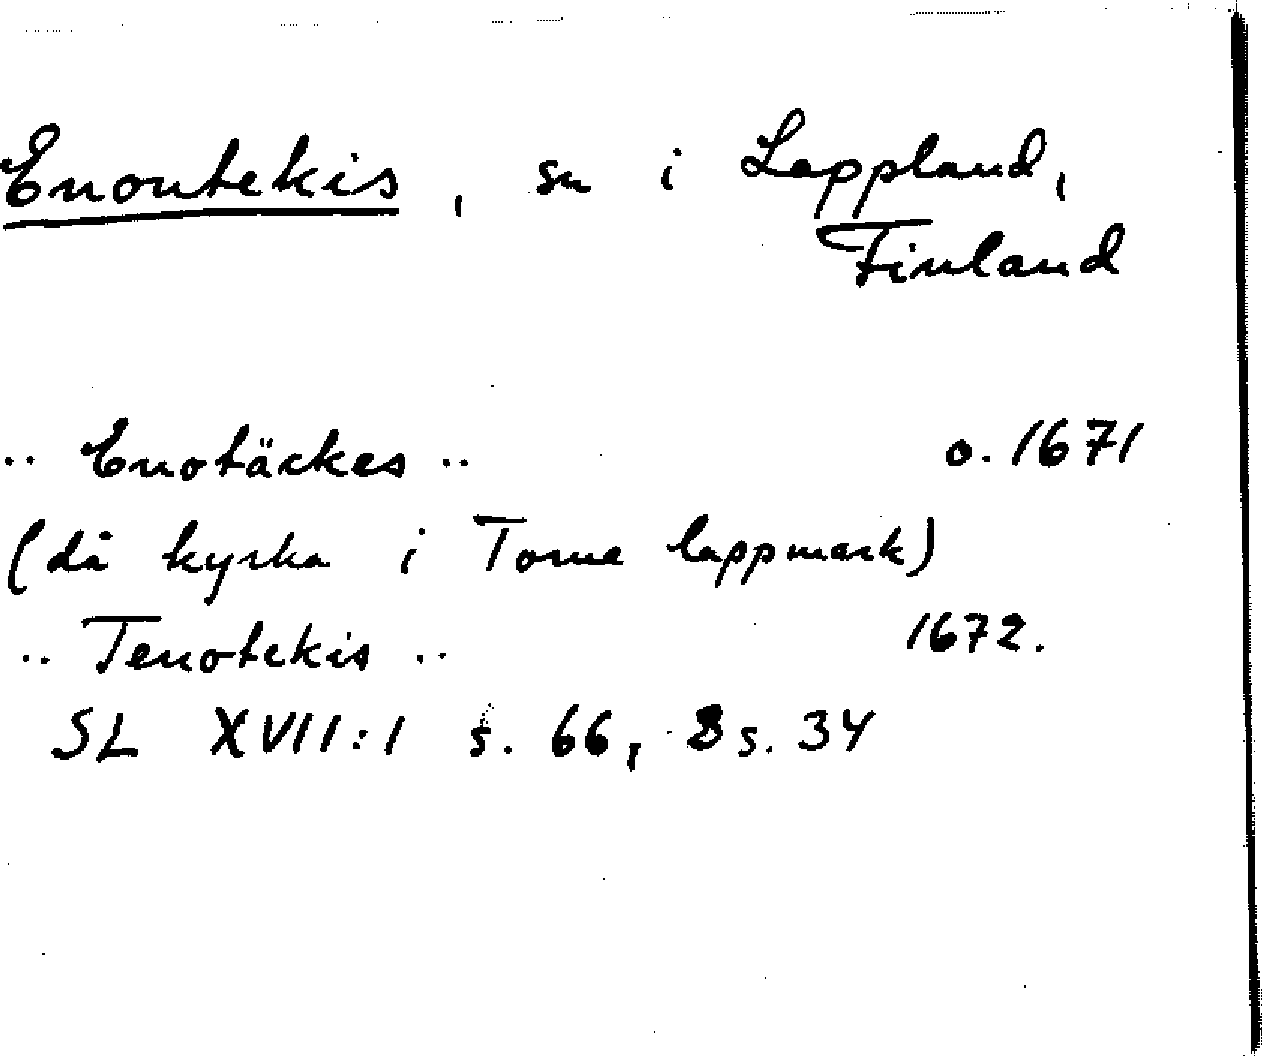 Enontekis, sn i Lappland,
Finland
.. Enotäckes .. o. 1671
(då kyrka i Torne lappmark)
.. Tenotekis .. 1672.
SL XVII:1 s. 66, 8 s. 34